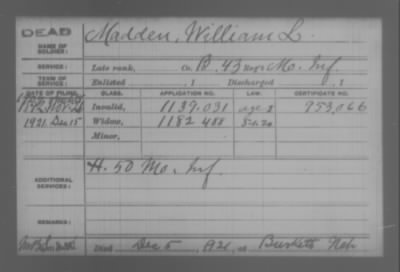 DEAD
NAME OF SOLDIER:
Madden, William L.
SERVICE:
Late rank, Co. B, 43 Reg't Mo. Inf.
TERM OF SERVICE:
Enlisted , 1 Discharged , 1
DATE OF FILING. CLASS. APPLICATION NO. LAW. CERTIFICATE NO.
Invalid, 1137.031 953,066
1921 Dec 15 Widow, 1182 488
Minor,
ADDITIONAL SERVICES:
H. 50 Mo. Inf.
REMARKS:
Died Dec 5, 1921, at Neb